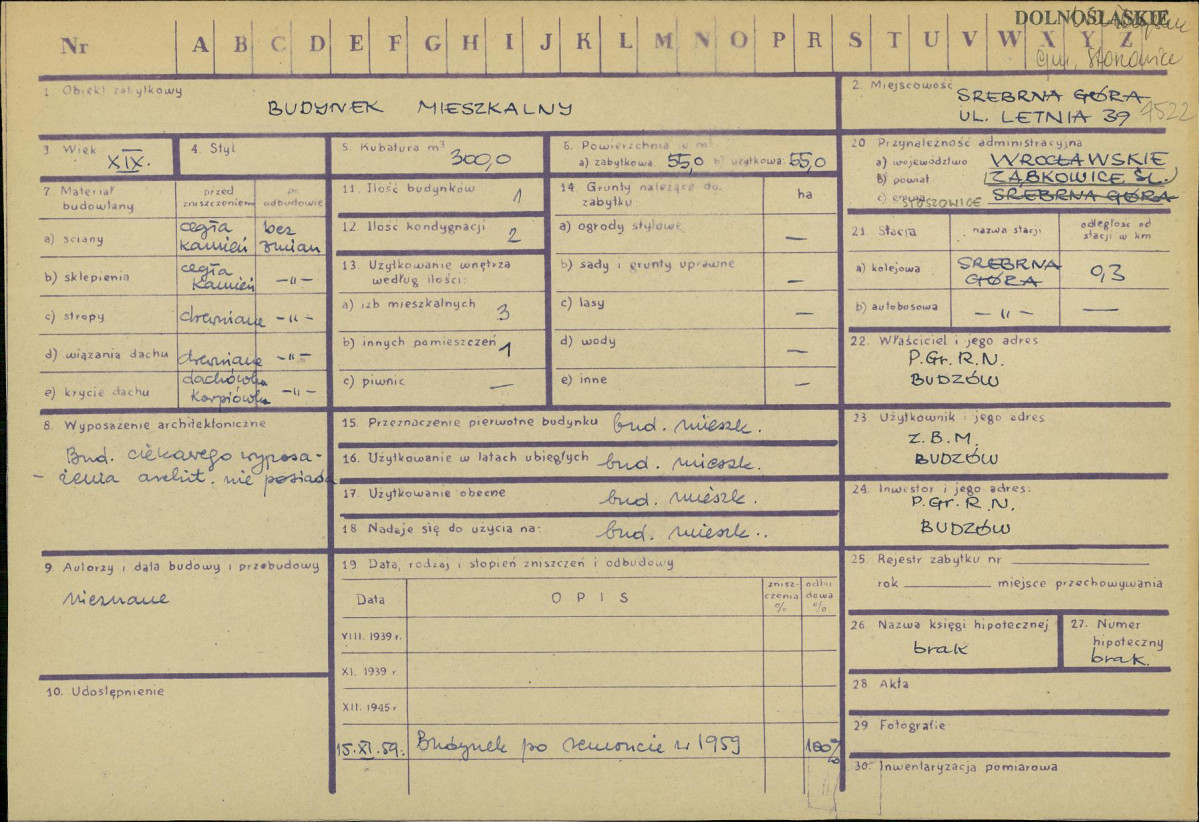 DOLNOŚLĄSKIE
Nr A B C D E F G H I J K L M N O P R S T U V W X Y Z
gm. Stoszowice
1. Obiekt zabytkowy
BUDYNEK MIESZKALNY
2. Miejscowość SREBRNA GÓRA
UL. LETNIA 39
3. Wiek
XIX.
4. Styl
5. Kubatura m³
300,0
6. Powierzchnia w m²
a) zabytkowa 55,0 b) użytkowa 55,0
20 Przynależność administracyjna
a) województwo WROCŁAWSKIE
b) powiat ZĄBKOWICE ŚL.
c) gmina STOSZOWICE SREBRNA GÓRA
7. Materiał budowlany
przed zniszczeniem
po odbudowie
a) ściany cegła kamień bez zmian
b) sklepienia cegła kamień -"-
c) stropy drewniane -"-
d) wiązania dachu drewniane -"-
e) krycie dachu dachówka karpiówka -"-
11. Ilość budynków 1
12. Ilość kondygnacji 2
13. Użytkowanie wnętrza
według ilości:
a) izb mieszkalnych 3
b) innych pomieszczeń 1
c) piwnic —
14. Grunty należące do
zabytku
ha
a) ogrody stylowe —
b) sady i grunty uprawne —
c) lasy —
d) wody —
e) inne —
21. Stacja
nazwa stacji
odległość od
stacji w km
a) kolejowa SREBRNA GÓRA 0,3
b) autobosowa -"- —
22. Właściciel i jego adres
P.Gr.R.N.
BUDZÓW
8. Wyposażenie architektoniczne
Bud. ciekawego wyposa-
- żenia archit. nie posiada
15. Przeznaczenie pierwotne budynku bud. mieszk.
16. Użytkowanie w latach ubiegłych bud. mieszk.
17. Użytkowanie obecne bud. mieszk.
18 Nadaje się do użycia na: bud. mieszk..
23. Użytkownik i jego adres
Z.B.M.
BUDZÓW
24. Inwestor i jego adres:
P.Gr.R.N.
BUDZÓW
9. Autorzy i data budowy i przebudowy
nieznane
10. Udostępnienie
19 Data, rodzaj i stopień zniszczeń i odbudowy
Data
OPIS
znisz-
czenia
%
odbu
dowa
%
VIII. 1939 r.
XI. 1939 r
XII. 1945 r
15.XI.59. Budynek po remoncie w 1959 100%
25. Rejestr zabytku nr
rok miejsce przechowywania
26 Nazwa księgi hipotecznej
brak
27. Numer
hipoteczny
brak.
28 Akta
29 Fotografie
30. Inwentaryzacja pomiarowa